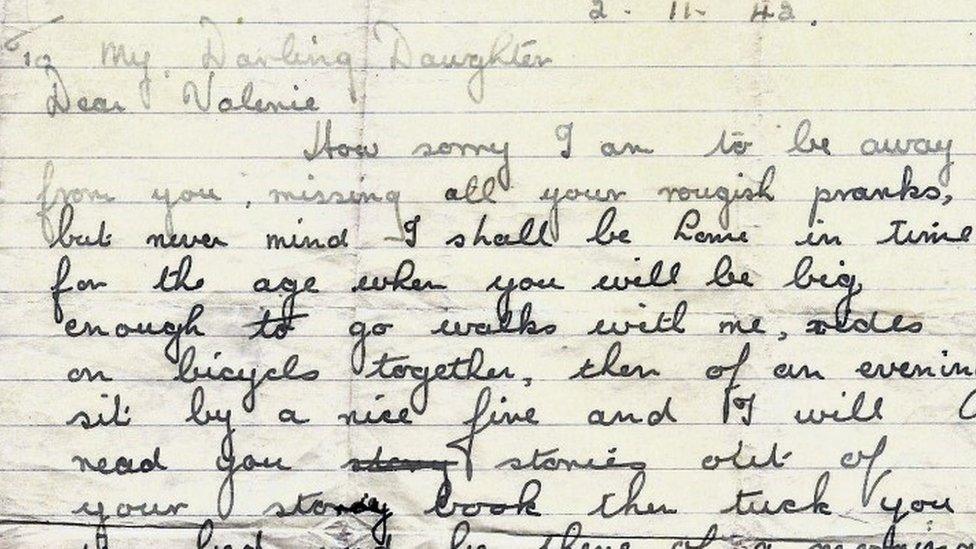 2 - 11 - 42.
To My Darling Daughter
Dear Valerie
How sorry I am to be away
from you, missing all your rougish pranks,
but never mind I shall be home in time
for the age when you will be big
enough to go walks with me, rides
on bicycls together, then of an evening
sit by a nice fire and I will
read you story stories out of
your story book then tuck you
bed and be there of a morning